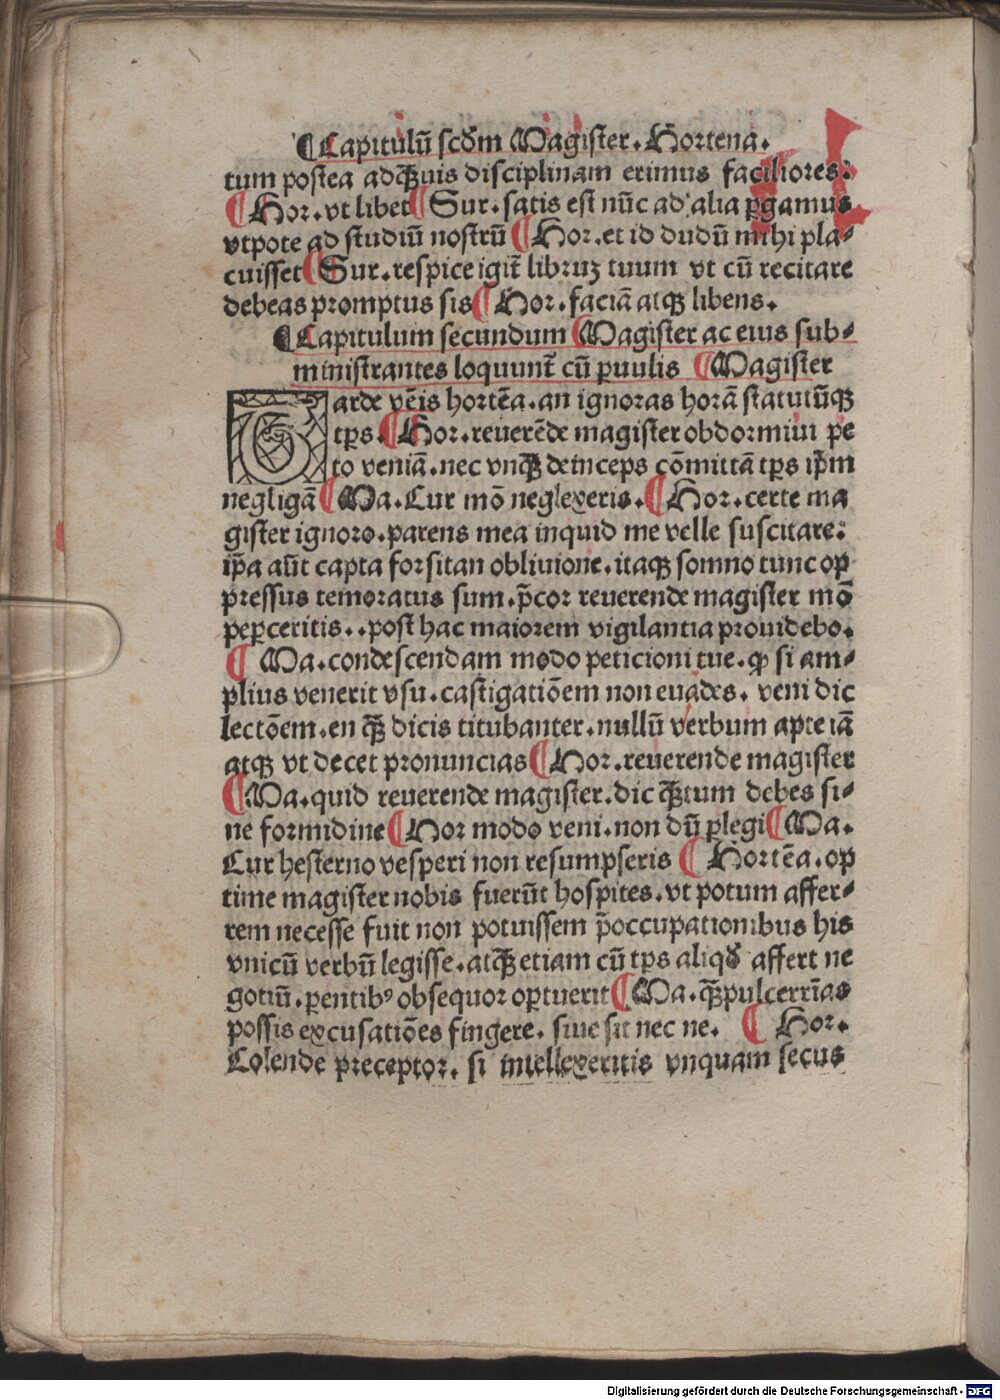 ¶Capitulū scd̄m Magister. Hortena.
tum postea adq̄uis disciplinam erimus faciliores:
¶Hor. vt libet ¶Sur. satis est nūc ad alia ꝑgamus
vtpote ad studiū nostrū ¶Hor. et id dudū mihi pla⸗
cuisset ¶Sur. respice igit̄ libruꝫ tuum vt cū recitare
debeas promptus sis ¶Hor. faciā atqꝫ libens.
¶Capitulum secundum Magister ac eius sub⸗
ministrantes loquunt̄ cū ꝑuulis ¶Magister
Tarde vēis hortēa. an ignoras horā statutūqꝫ
tp̄s. ¶Hor. reuerēde magister obdormiui pe
to veniā. nec vnq̄ꝫ deinceps cōmittā tp̄s ip̄m
negligā ¶Ma. Cur mō neglexeris. ¶Hor. certe ma
gister ignoro. parens mea inquid me velle suscitare:
ip̄a aūt capta forsitan obliuione. itaqꝫ somno tunc op
pressus temoratus sum. p̄cor reuerende magister mō
peꝑceritis.. post hac maiorem vigilantia prouidebo.
¶Ma. condescendam modo peticioni tue. ꝙ si am⸗
plius venerit vsu. castigatiōem non euades. veni dic
lectōem. en q̄ꝫ dicis titubanter. nullū verbum apte iā
atqꝫ vt decet pronuncias ¶Hor. reuerende magister
¶Ma. quid reuerende magister. dic q̄ꝫtum debes si⸗
ne formidine ¶Hor modo veni. non dū ꝑlegi ¶Ma.
Cur hesterno vesperi non resumpseris ¶Hortēa. op
time magister nobis fuerūt hospites. vt potum affer⸗
rem necesse fuit non potuissem p̄occupationibus his
vnicū verbū legisse. atq̄ꝫ etiam cū tp̄s aliqd̄ affert ne
gotiū. ꝑentibꝰ obsequor oꝑtuerit ¶Ma. q̄ꝫ pulcerrīas
possis excusatiōes fingere. siue sit nec ne. ¶Hor.
Colende preceptor. si intellexeritis vnquam secus
Digitalisierung gefördert durch die Deutsche Forschungsgemeinschaft - DFG